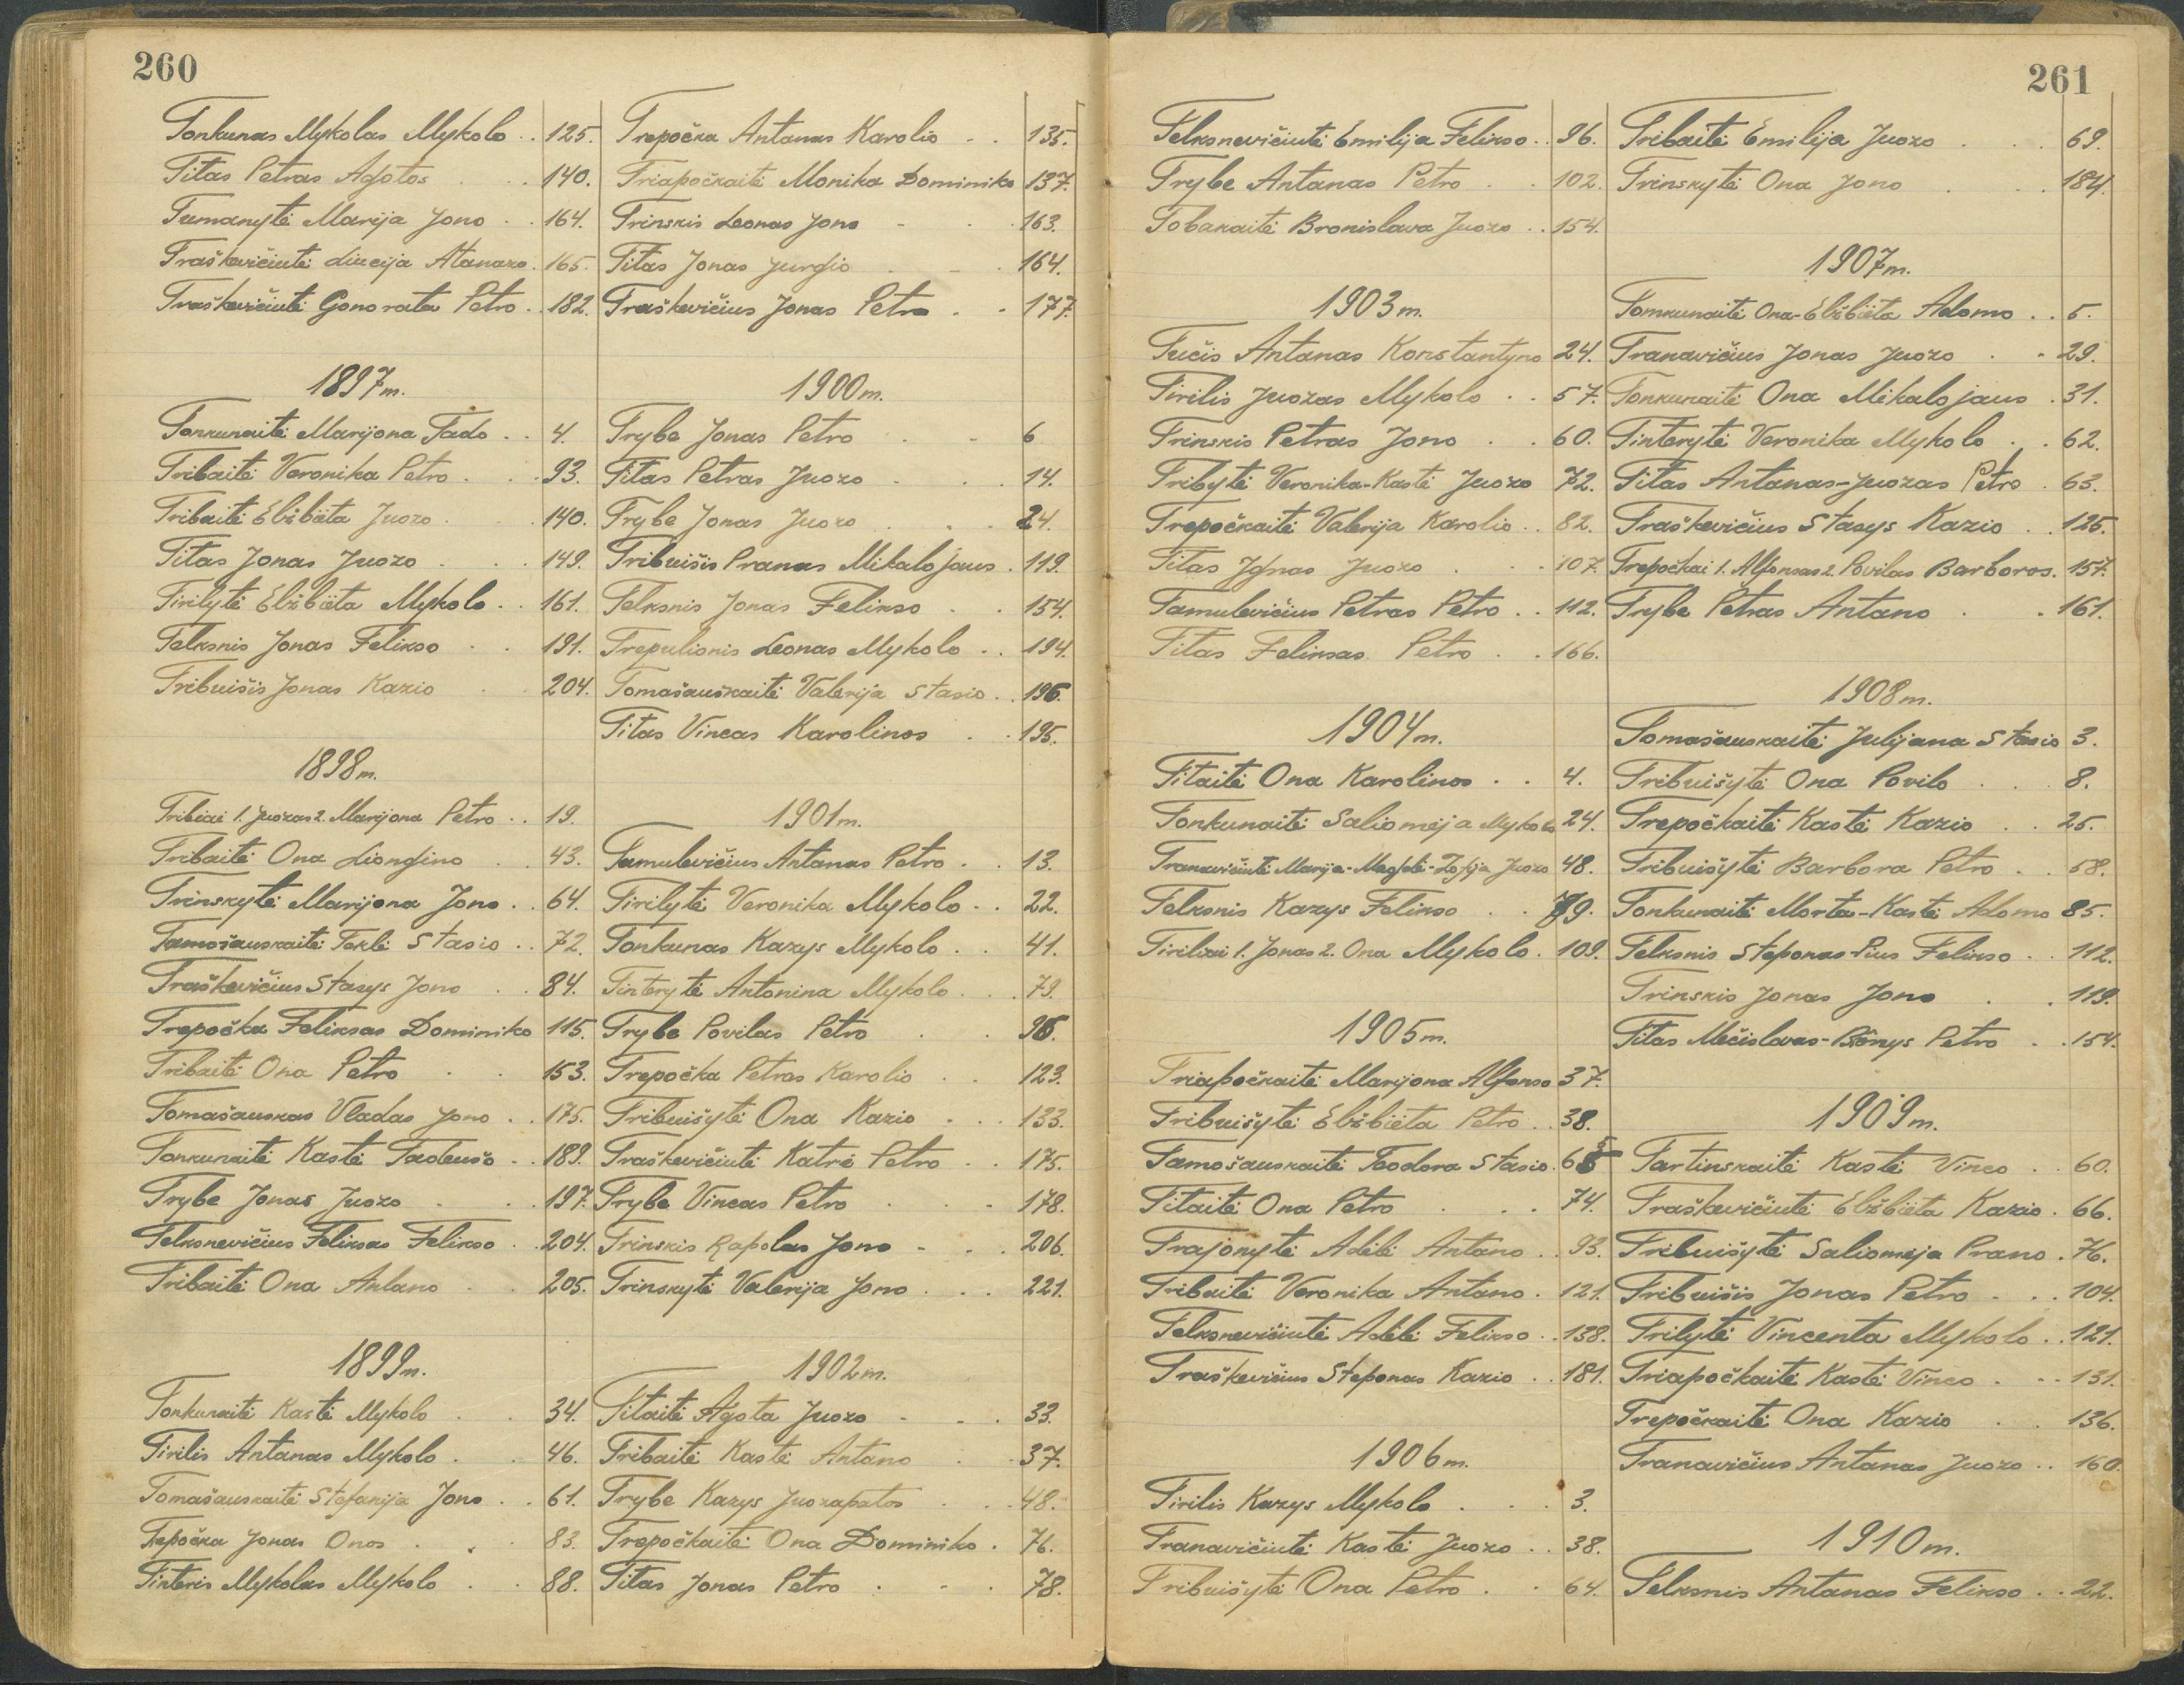 260
Tonkunas Mykolas Mykolo . . 125.
Titas Petras Agotos . . 140.
Tumanytė Marija Jono . . 164.
Traškevičiutė Liucija Atanazo . 165.
Traškevičiutė Gonorata Petro . . 182.
1897 m.
Tonkunaitė Marijona Tado . . 4.
Tribaitė Veronika Petro . . 93.
Tribaitė Elžbieta Juozo . . 140.
Titas Jonas Juozo . . 149.
Tirilytė Elžbieta Mykolo . . 161.
Telksnis Jonas Felikso . . 191.
Tribuišis Jonas Kazio . . 204.
1898 m.
Tribiai 1. Juozas 2. Marijona Petro . . 19.
Tribaitė Ona Liongino . . 43.
Trinskytė Marijona Jono . . 64.
Tamošauskaitė Teklė Stasio . . 72.
Traškevičius Stasys Jono . . 84.
Trepočka Feliksas Dominiko 115.
Tribaitė Ona Petro . . 153.
Tomašauskas Vladas Jono . . 175.
Tonkunaitė Kastė Tadeušo . . 189.
Trybe Jonas Juozo . . 197.
Telksnevičius Feliksas Felikso . . 204.
Tribaitė Ona Antano . . 205.
1899 m.
Tonkunaitė Kastė Mykolo . . 34.
Tirilis Antanas Mykolo . . 46.
Tomašauskaitė Stefanija Jono . . 61.
Trepočka Jonas Onos . . 83.
Tinteris Mykolas Mykolo . . 88.
Trepočka Antanas Karolio . . 135.
Triapočkaitė Monika Dominiko 137.
Trinskis Leonas Jono . . 163.
Titas Jonas Jurgio . . 164.
Traškevičius Jonas Petro . . 177.
1900 m.
Trybe Jonas Petro . . 6
Titas Petras Juozo . . 14.
Trybe Jonas Juozo . . 24.
Tribuišis Pranas Mikalojaus . 119.
Telksnis Jonas Felikso . . 154.
Trepulionis Leonas Mykolo . . 194.
Tomašauskaitė Valerija Stasio . . 196.
Titas Vincas Karolinos . . 195.
1901 m.
Tamulevičius Antanas Petro . . 13.
Tirilytė Veronika Mykolo . . 22.
Tonkunas Kazys Mykolo . . 41.
Tinterytė Antonina Mykolo . . 79.
Trybe Povilas Petro . . 96.
Trepočka Petras Karolio . . 123.
Tribuišytė Ona Kazio . . 133.
Traškevičiutė Katrė Petro . . 175.
Trybe Vincas Petro . . 178.
Trinskis Rapolas Jono . . 206.
Trinskytė Valerija Jono . . 221.
1902 m.
Titaitė Agota Juozo . . 33.
Tribaitė Kastė Antano . . 37.
Trybe Kazys Juozapatos . . 48.
Trepočkaitė Ona Dominiko . 76.
Titas Jonas Petro . . 78.
261
Telksnevičiutė Emilija Felikso . . 96.
Trybe Antanas Petro . . 102.
Tobakaitė Bronislava Juozo . . 154.
1903 m.
Tučis Antanas Konstantyno 24.
Tirilis Juozas Mykolo . . 57.
Trinskis Petras Jono . . 60.
Tribytė Veronika-Kastė Juozo 72.
Trepočkaitė Valerija Karolio . . 82.
Titas Ignas Juozo . . 107.
Tamulevičius Petras Petro . . 112.
Titas Feliksas Petro . . 166.
1904 m.
Titaitė Ona Karolinos . . 4.
Tonkunaitė Saliomėja Mykolo 24.
Tranavičiutė Marija-Magdė-Zofija Juozo 48.
Telksnis Kazys Felikso . . 79.
Tiriliai 1. Jonas 2. Ona Mykolo . 109.
1905 m.
Triapočkaitė Marijona Alfonso 37.
Tribuišytė Elžbieta Petro . . 38.
Tamošauskaitė Teodora Stasio . 65
Titaitė Ona Petro . . 74.
Trajonytė Adėlė Antano . . 93.
Tribaitė Veronika Antano . 121.
Telksnevičiutė Adėlė Felikso . . 138.
Traškevičius Steponas Kazio . . 181.
1906 m.
Tirilis Kazys Mykolo . . 3.
Tranavičiutė Kastė Juozo . . 38.
Tribuišytė Ona Petro . . 64.
Tribaitė Emilija Juozo . . 69.
Trinskytė Ona Jono . . 184.
1907 m.
Tomkunaitė Ona-Elžbieta Adomo . . 5.
Tranavičius Jonas Juozo . . 29.
Tonkunaitė Ona Mikalojaus . 31.
Tinterytė Veronika Mykolo . . 62.
Titas Antanas-Juozas Petro . 63.
Traškevičius Stasys Kazio . . 125.
Trepočkai 1. Alfonsas 2. Povilas Barboros . 157.
Trybe Petras Antano . . 161.
1908 m.
Tomašauskaitė Julijana Stasio 3.
Tribuišytė Ona Povilo . . 8.
Trepočkaitė Kastė Kazio . . 25.
Tribuišytė Barbora Petro . . 58.
Tonkunaitė Morta-Kastė Adomo 85.
Telksnis Steponas-Pius Felikso . . 112.
Trinskis Jonas Jono . . 119.
Titas Mečislovas-Bronys Petro . . 154.
1909 m.
Tartinskaitė Kastė Vinco . . 60.
Traškevičiutė Elžbieta Kazio . 66.
Tribuišytė Saliomėja Prano . 76.
Tribuišis Jonas Petro . . 104.
Trilytė Vincenta Mykolo . . 121.
Triapočkaitė Kastė Vinco . . 131.
Trepočkaitė Ona Kazio . . 136.
Tranavičius Antanas Juozo . . 160.
1910 m.
Telksnis Antanas Felikso . . 22.